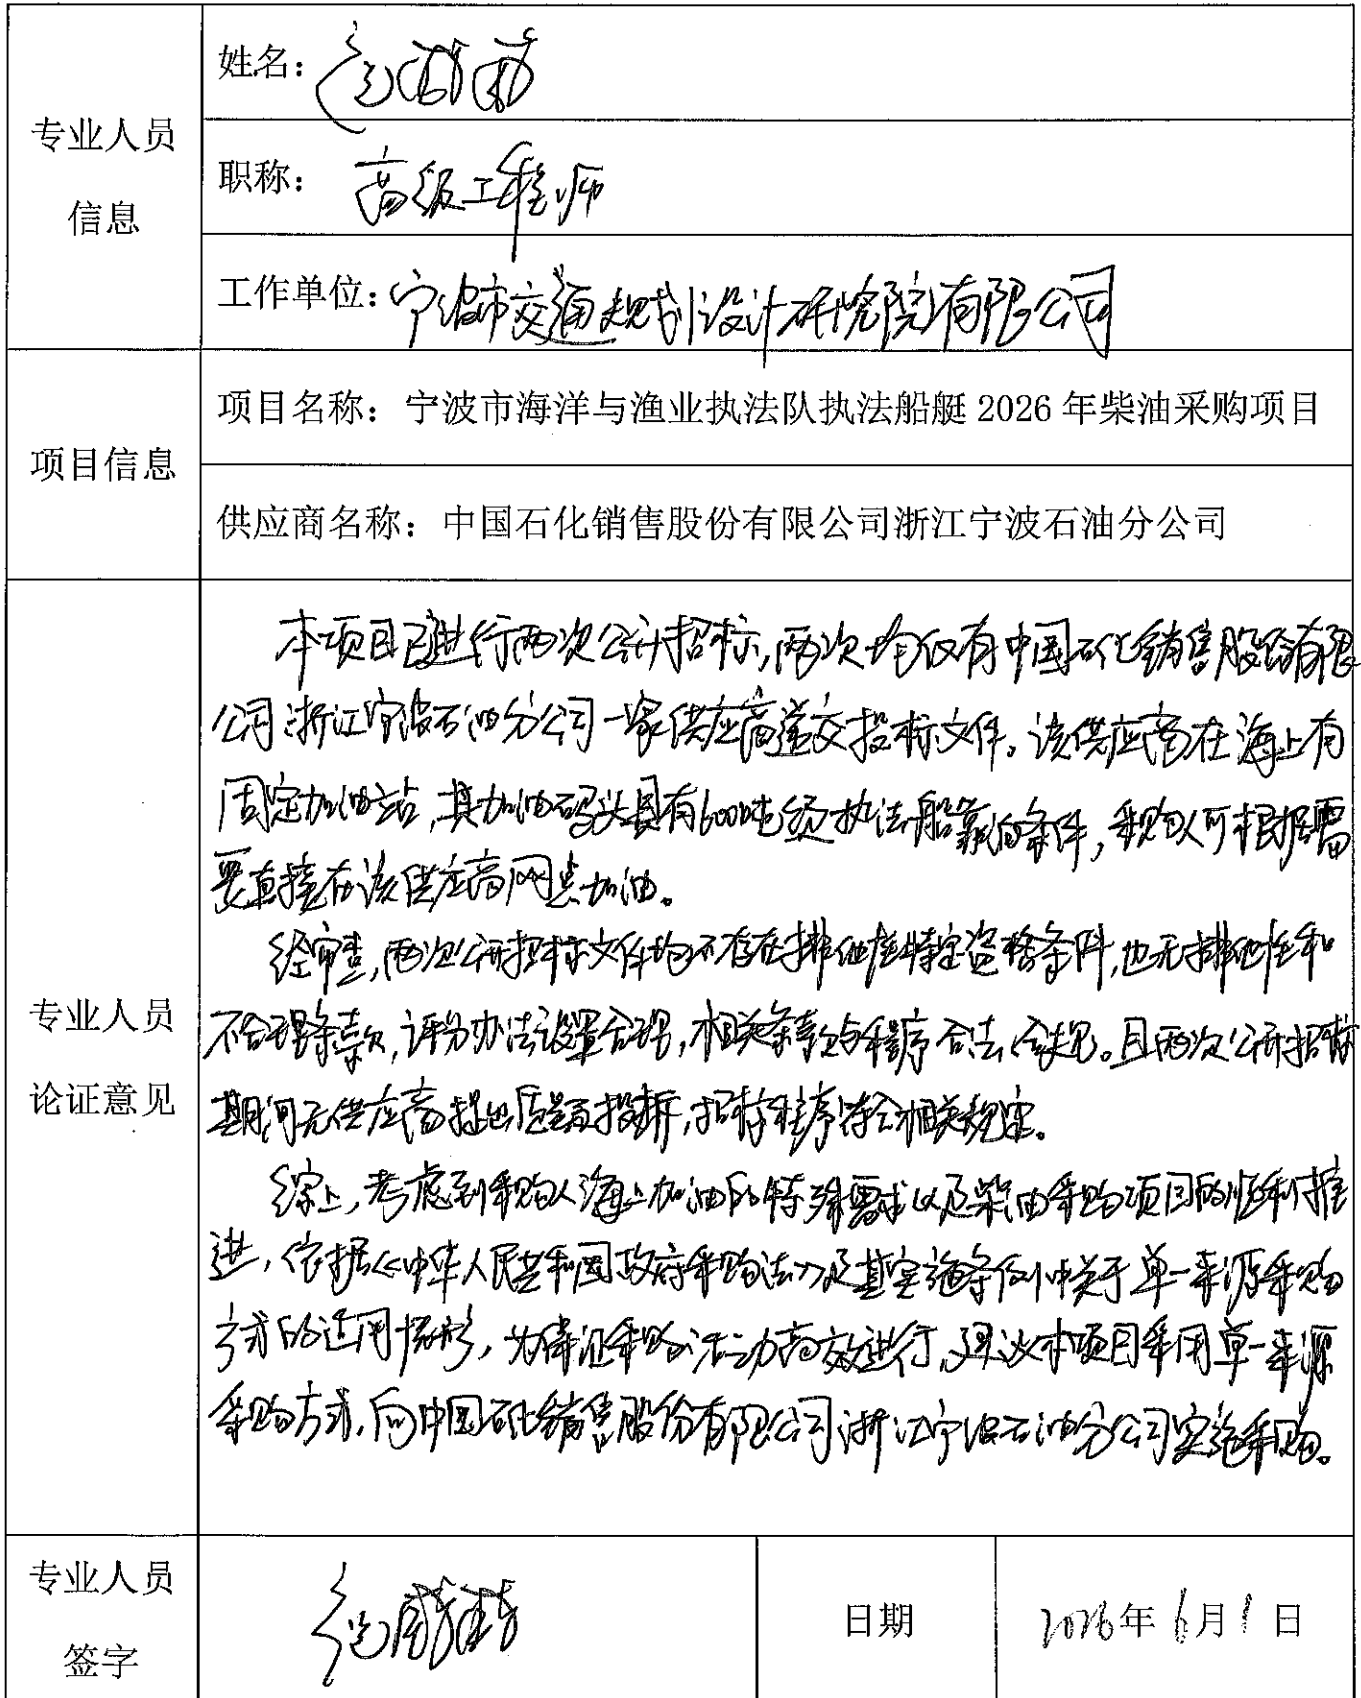 专业人员
信息
姓名：
职称：高级工程师
工作单位：宁波市交通规划设计研究院有限公司
项目信息
项目名称：宁波市海洋与渔业执法队执法船艇 2026 年柴油采购项目
供应商名称：中国石化销售股份有限公司浙江宁波石油分公司
专业人员
论证意见
本项目已进行两次公开招标，两次均仅有中国石化销售股份有限
公司浙江宁波石油分公司一家供应商递交投标文件。该供应商在海上有
固定加油站，其加油码头具有600吨级执法船靠泊条件，采购人可根据需
要直接在该供应商网点加油。
经审查，两次公开招标文件均不存在排他性特定资格条件，也无排他性和
不合理条款，评分办法设置合理，相关条款与程序合法合规。且两次公开招标
期间无供应商提出质疑投诉，招标程序符合相关规定。
综上，考虑到采购人海上加油的特殊需求以及柴油采购项目的顺利推
进，依据《中华人民共和国政府采购法》及其实施条例中关于单一来源采购
方式的适用情形，为保证采购活动高效进行，建议本项目采用单一来源
采购方式，向中国石化销售股份有限公司浙江宁波石油分公司实施采购。
专业人员
签字
日期
2026年6月1日